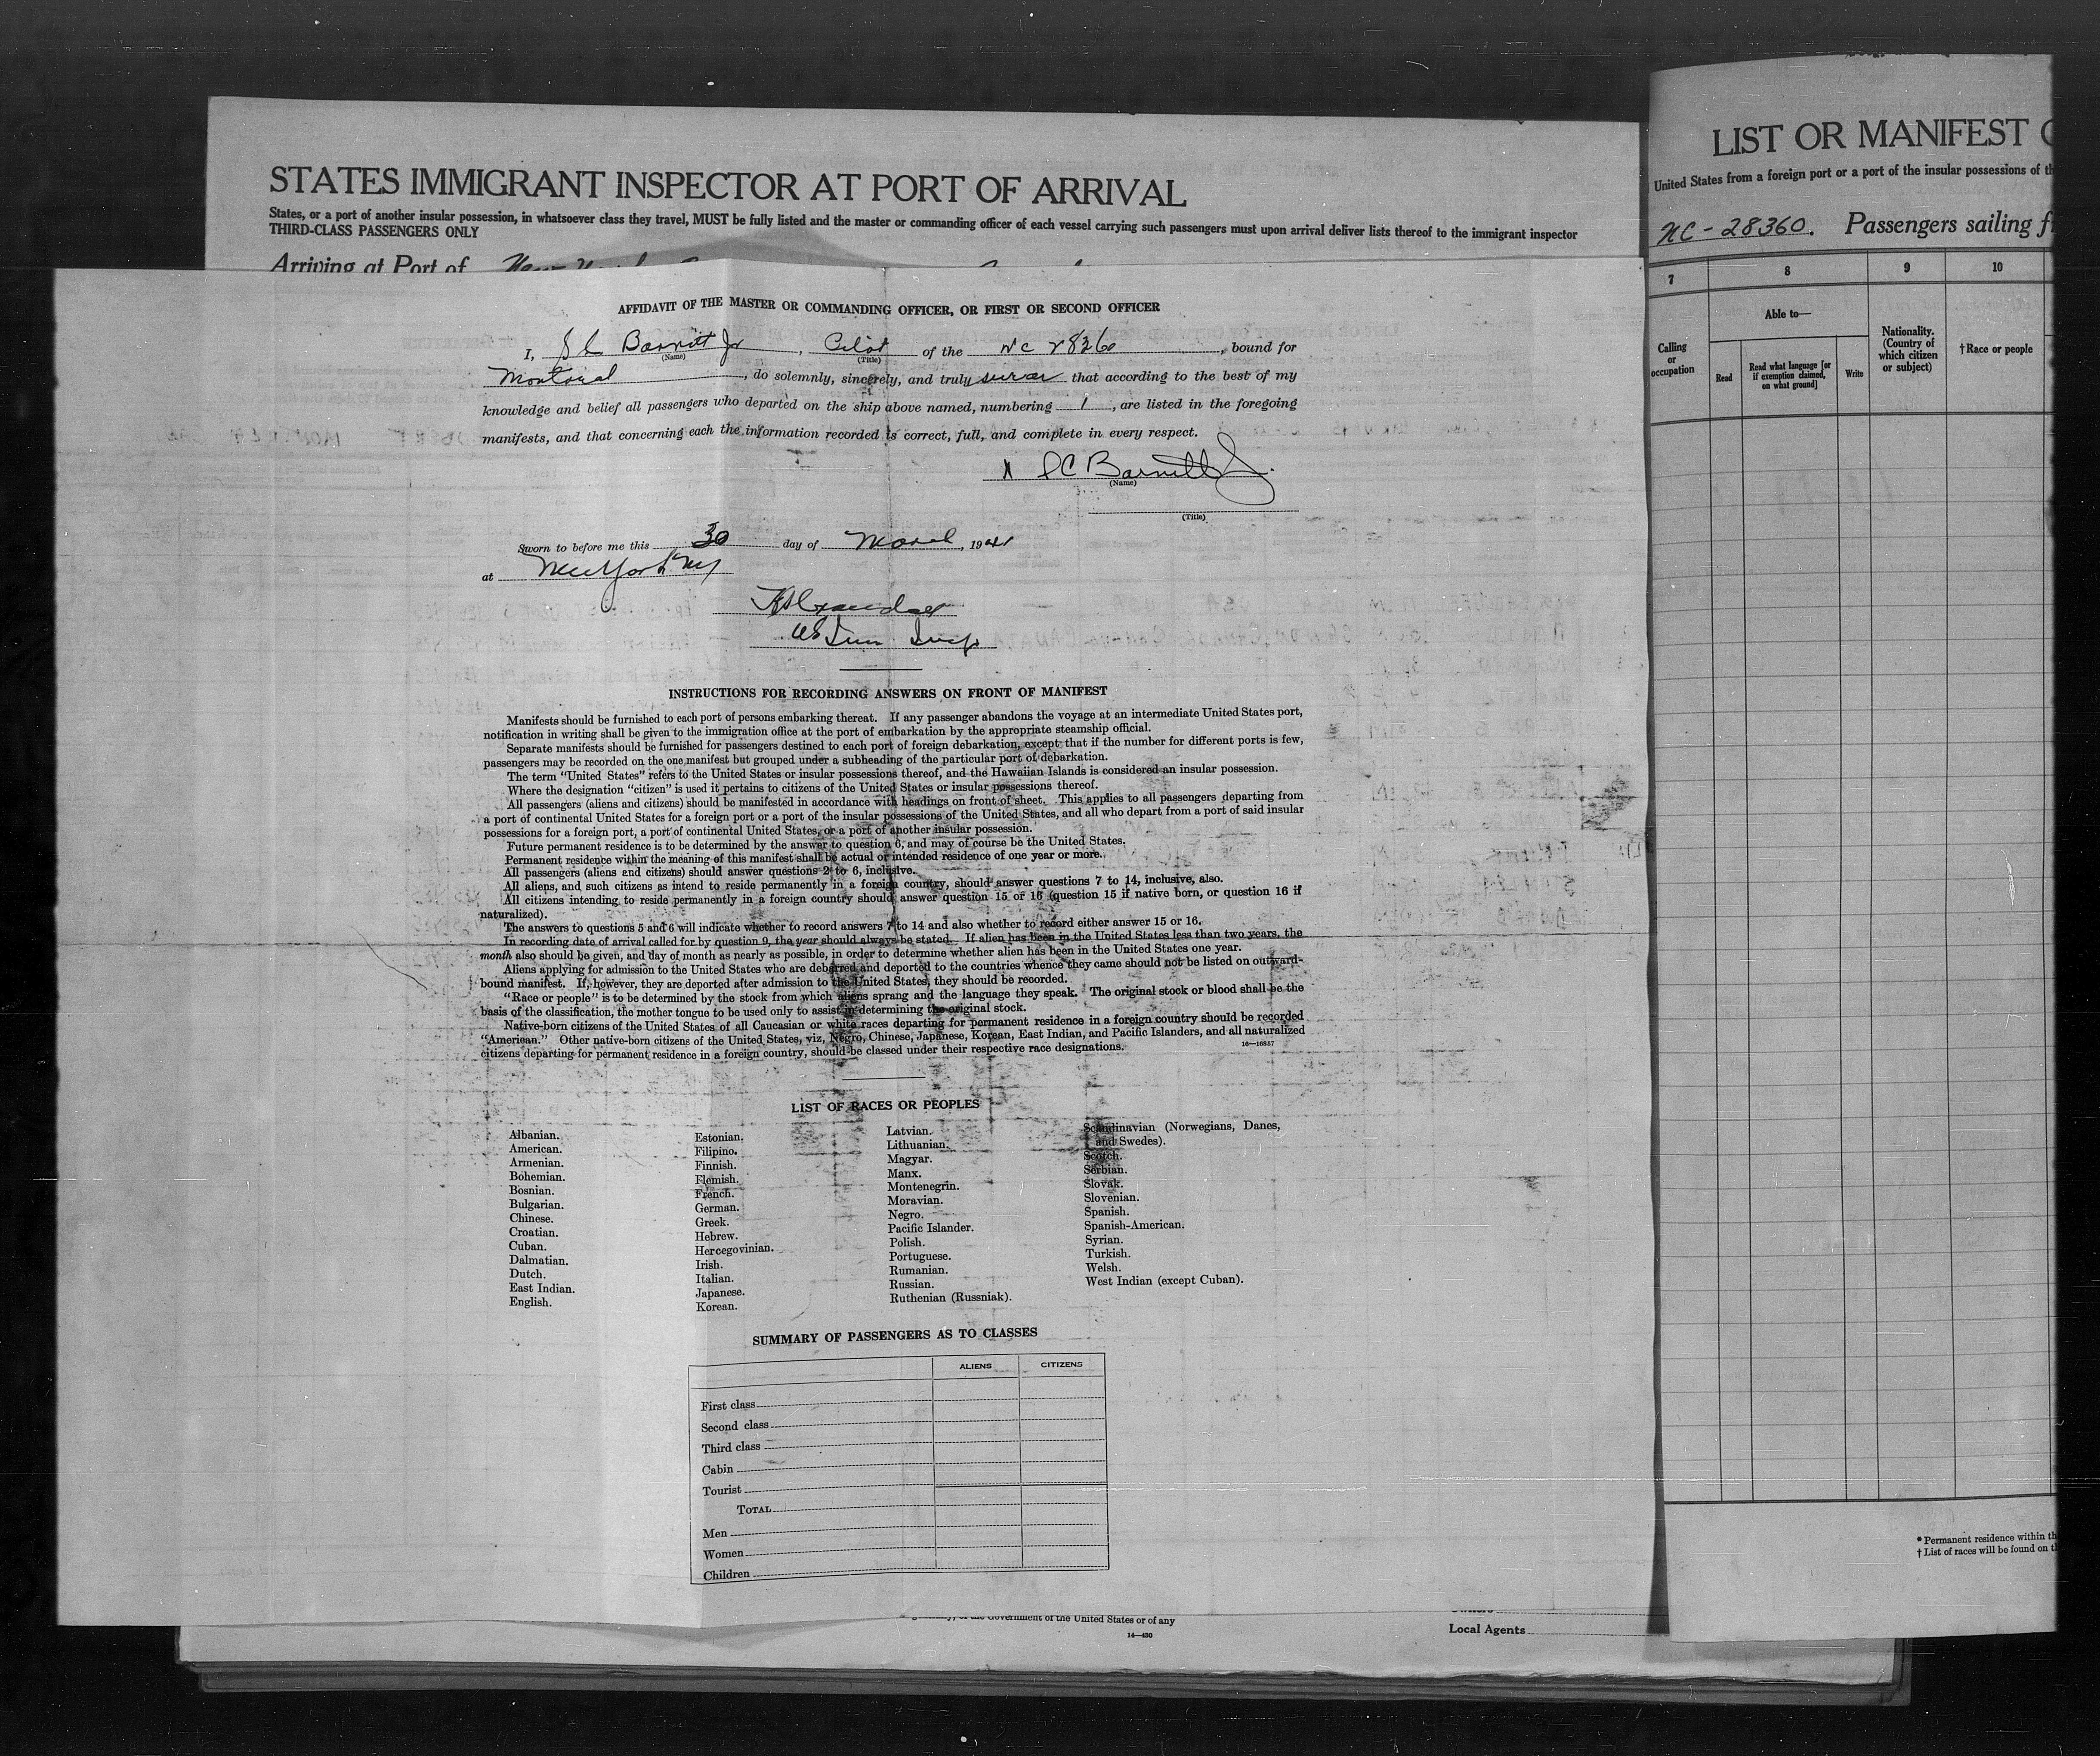 STATES IMMIGRANT INSPECTOR AT PORT OF ARRIVAL
States, or a port of another insular possession, in whatsoever class they travel, MUST be fully listed and the master or commanding officer of each vessel carrying such passengers must upon arrival deliver lists thereof to the immigrant inspector
THIRD-CLASS PASSENGERS ONLY
Arriving at Port of New York
AFFIDAVIT OF THE MASTER OR COMMANDING OFFICER, OR FIRST OR SECOND OFFICER
I, Barnitt Jr, Pilot of the NC 28360, bound for
(Name) (Title)
Montreal, do solemnly, sincerely, and truly swear that according to the best of my
knowledge and belief all passengers who departed on the ship above named, numbering 1, are listed in the foregoing
manifests, and that concerning each the information recorded is correct, full, and complete in every respect.
X SC Barnitt Jr.
(Name)
(Title)
Sworn to before me this 30 day of March, 1941
at New York NY
US Imm Insp
INSTRUCTIONS FOR RECORDING ANSWERS ON FRONT OF MANIFEST
Manifests should be furnished to each port of persons embarking thereat. If any passenger abandons the voyage at an intermediate United States port,
notification in writing shall be given to the immigration office at the port of embarkation by the appropriate steamship official.
Separate manifests should be furnished for passengers destined to each port of foreign debarkation, except that if the number for different ports is few,
passengers may be recorded on the one manifest but grouped under a subheading of the particular port of debarkation.
The term "United States" refers to the United States or insular possessions thereof, and the Hawaiian Islands is considered an insular possession.
Where the designation "citizen" is used it pertains to citizens of the United States or insular possessions thereof.
All passengers (aliens and citizens) should be manifested in accordance with headings on front of sheet. This applies to all passengers departing from
a port of continental United States for a foreign port or a port of the insular possessions of the United States, and all who depart from a port of said insular
possessions for a foreign port, a port of continental United States, or a port of another insular possession.
Future permanent residence is to be determined by the answer to question 6, and may of course be the United States.
Permanent residence within the meaning of this manifest shall be actual or intended residence of one year or more.
All passengers (aliens and citizens) should answer questions 2 to 6, inclusive.
All aliens, and such citizens as intend to reside permanently in a foreign country, should answer questions 7 to 14, inclusive, also.
All citizens intending to reside permanently in a foreign country should answer question 15 or 16 (question 15 if native born, or question 16 if
naturalized).
The answers to questions 5 and 6 will indicate whether to record answers 7 to 14 and also whether to record either answer 15 or 16.
In recording date of arrival called for by question 9, the year should always be stated. If alien has been in the United States less than two years, the
month also should be given, and day of month as nearly as possible, in order to determine whether alien has been in the United States one year.
Aliens applying for admission to the United States who are debarred and deported to the countries whence they came should not be listed on outward-
bound manifest. If, however, they are deported after admission to the United States, they should be recorded.
"Race or people" is to be determined by the stock from which aliens sprang and the language they speak. The original stock or blood shall be the
basis of the classification, the mother tongue to be used only to assist in determining the original stock.
Native-born citizens of the United States of all Caucasian or white races departing for permanent residence in a foreign country should be recorded
"American." Other native-born citizens of the United States, viz, Negro, Chinese, Japanese, Korean, East Indian, and Pacific Islanders, and all naturalized
citizens departing for permanent residence in a foreign country, should be classed under their respective race designations.
16—16857
LIST OF RACES OR PEOPLES
Albanian.
American.
Armenian.
Bohemian.
Bosnian.
Bulgarian.
Chinese.
Croatian.
Cuban.
Dalmatian.
Dutch.
East Indian.
English.
Estonian.
Filipino.
Finnish.
Flemish.
French.
German.
Greek.
Hebrew.
Hercegovinian.
Irish.
Italian.
Japanese.
Korean.
Latvian.
Lithuanian.
Magyar.
Manx.
Montenegrin.
Moravian.
Negro.
Pacific Islander.
Polish.
Portuguese.
Rumanian.
Russian.
Ruthenian (Russniak).
Scandinavian (Norwegians, Danes,
and Swedes).
Scotch.
Serbian.
Slovak.
Slovenian.
Spanish.
Spanish-American.
Syrian.
Turkish.
Welsh.
West Indian (except Cuban).
SUMMARY OF PASSENGERS AS TO CLASSES
ALIENS CITIZENS
First class
Second class
Third class
Cabin
Tourist
TOTAL
Men
Women
Children
of the Government of the United States or of any
14—430
Owners
Local Agents
LIST OR MANIFEST
United States from a foreign port or a port of the insular possessions of
NC-28360. Passengers sailing
7 8 9 10
Calling
or
occupation
Able to—
Read
Read what language [or
if exemption claimed,
on what ground]
Write
Nationality.
(Country of
which citizen
or subject)
†Race or people
* Permanent residence within
† List of races will be found on